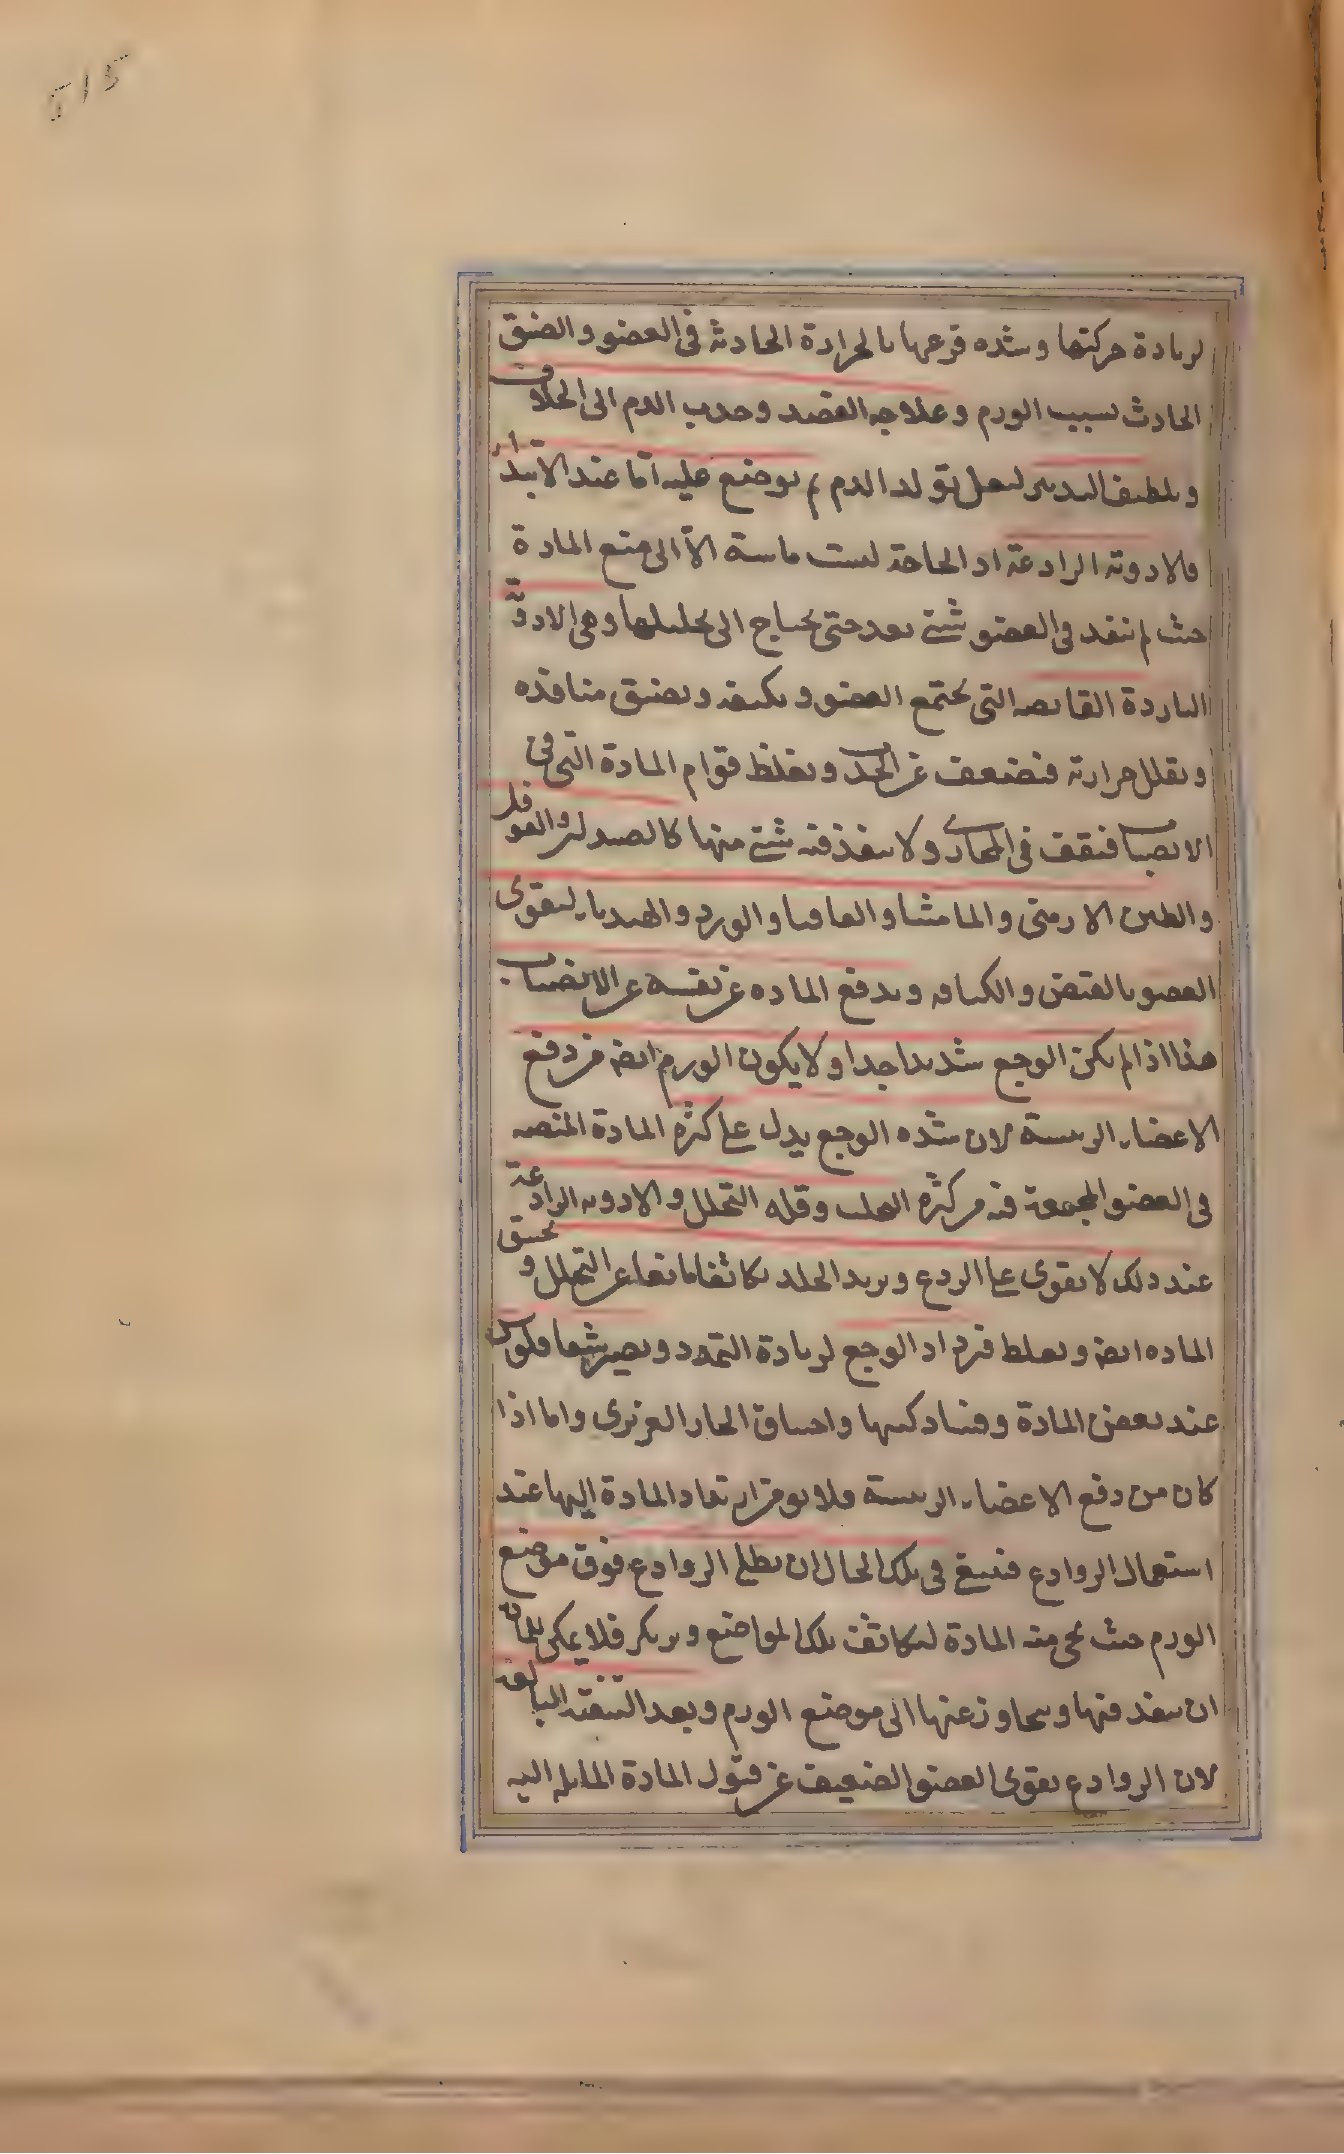 لزيادة حركتها وشده قرعها بالحرارة الحادثة فى العضو والضيق
الحادث بسبب الورم وعلاجه الفصد وجذب الدم الى الخلاف
وتلطيف التدبير ليقل تولد الدم ثم يوضع عليه اما عند الابتداء
فالادوية الرادعة اذ الحاجة ليست ماسة الا الى منع المادة
حيث لم تنفذ فى العضو شئ بعد حتى يحتاج الى تحليلها وهى الادوية
الباردة القابضه التى تجمع العضو وتكثفه وتضيق منافذه
وتقلل حرارته فتضعف عن الجذب وتغلظ قوام المادة التى فى
الانصباب فتقف فى المجارى ولا ينفذ فيه شئ منها كالصندلين والفوفل
والطين الارمنى والماميثا والقاقيا والورد والهندباء ليقوى
العضو بالقبض والكثافه ويدفع الماده عن نفسه عن الانصباب
هذا اذا لم يكن الوجع شديدا جدا ولا يكون الورم ايضا من دفع
الاعضاء الرئيسة لان شده الوجع يدل على كثرة المادة المنصبه
فى العضو المجمعة فيه من كثرة الجلب وقله التحلل والادويه الرادعة
عند ذلك لا يقوى على الردع ويزيد الجلد تكاثفا مانعا عن التحلل ويحتقن
الماده ايضا ويغلظ فيزداد الوجع لزيادة التمدد ويصير
عند تعفن المادة وفساد كيفيتها واختناق الحار الغريزى واما اذا
كان من دفع الاعضاء الرئيسة فلا يؤمن ارتداد المادة اليها عند
استعمال الروادع فينبغى فى تلك الحال ان يطلى الروادع فوق موضع
الورم حيث يجى منه المادة ليتكاثف تلك المواضع فلا يمكن للمادة
ان ينفذ فيها ويتجاوز عنها الى موضع الورم وبعد التنقية البالغه
لان الروادع يقوى العضو الضعيف عن قبول المادة المايله اليه